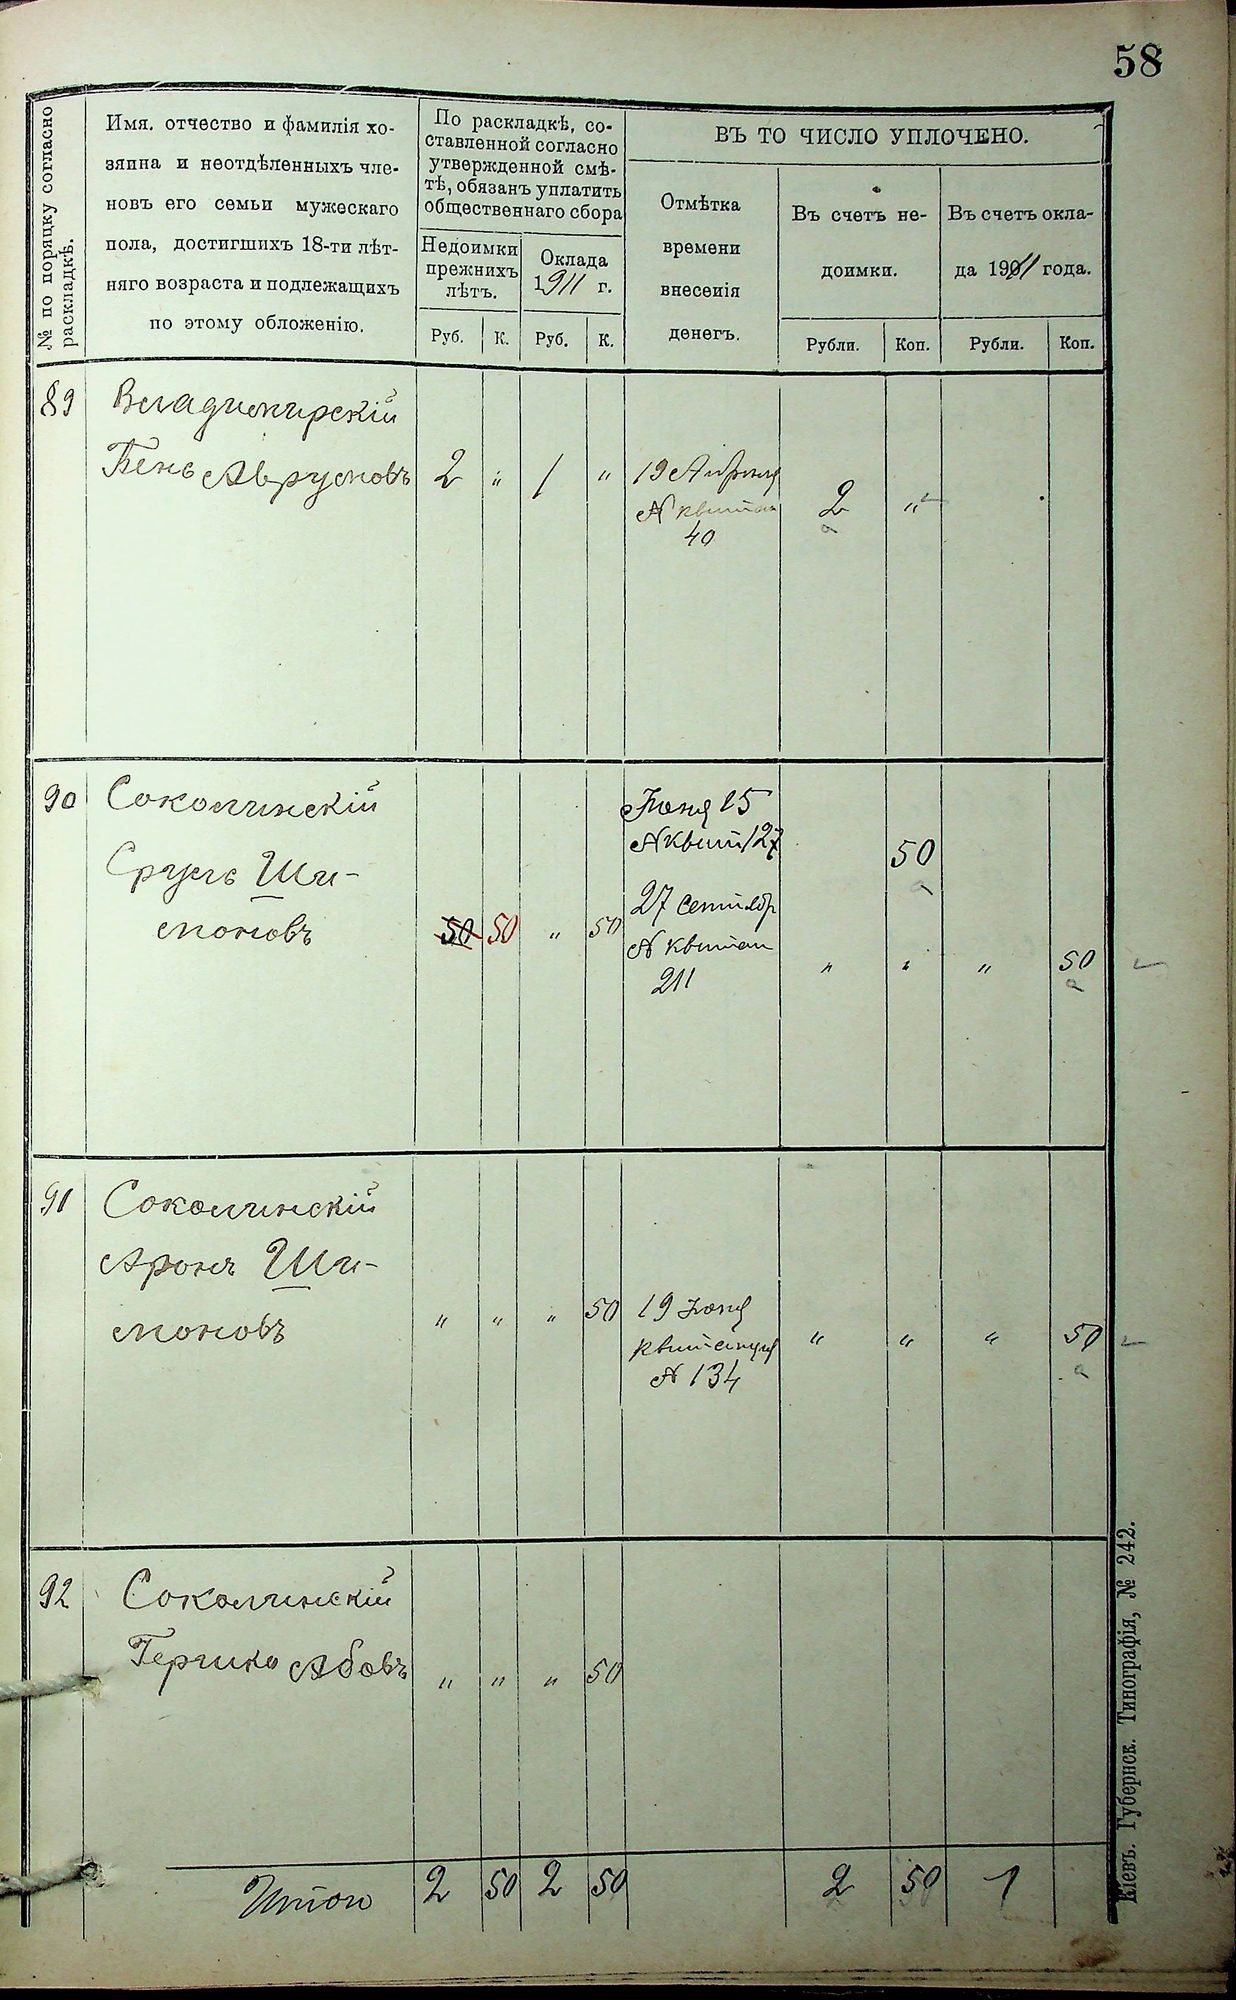 58
№ по порядку согласно
раскладкѣ.
Имя. отчество и фамилія хо-
зяина и неотдѣленныхъ чле-
новъ его семьи мужескаго
пола, достигшихъ 18-ти лѣт-
няго возраста и подлежащихъ
по этому обложенію.
По раскладкѣ, со-
ставленной согласно
утвержденной смѣ-
тѣ, обязанъ уплатить
общественнаго сбора
Недоимки
прежнихъ
лѣтъ.
Оклада
1911 г.
Руб. К. Руб. К.
ВЪ ТО ЧИСЛО УПЛОЧЕНО.
Отмѣтка
времени
внесенія
денегъ.
Въ счетъ не-
доимки.
Въ счетъ окла-
да 1911 года.
Рубли. Коп. Рубли. Коп.
89 Владимирскій
Бень Аврумовъ 2 " 1 " 19 Апрѣля 2 "
№ квитан
40
90 Соколинскій Іюня 15
№ квит 127 50
Сруль Ши-
моновъ 50 50 " 50 27 сентябр
№ квитан " " " 50
211
91 Соколинскій
Аронъ Ши-
моновъ " " " 50 19 Іюня " " " 50
квитанция
№ 134
92 Соколинскій
Гершко Абовъ " " " 50
Итого 2 50 2 50 2 50 1
Кіевъ. Губернск. Типографія, № 242.